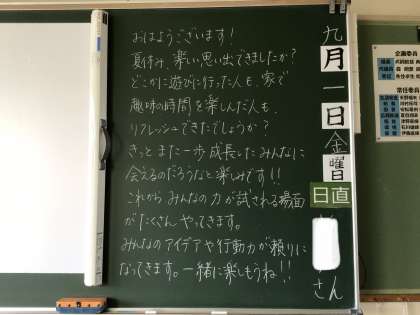 おはようございます!
夏休み、楽しい思い出できましたか?
どこかに遊びに行った人も、家で
趣味の時間を楽しんだ人も、
リフレッシュできたでしょうか?
きっとまた一歩成長したみんなに
会えるのだろうなと楽しみです!!
これからみんなの力が試される場面
がたくさんやってきます。
みんなのアイデアや行動力が頼りに
なってきます。一緒に楽しもうね!!
九月一日金曜日
日直
さん
企画委員
常任委員